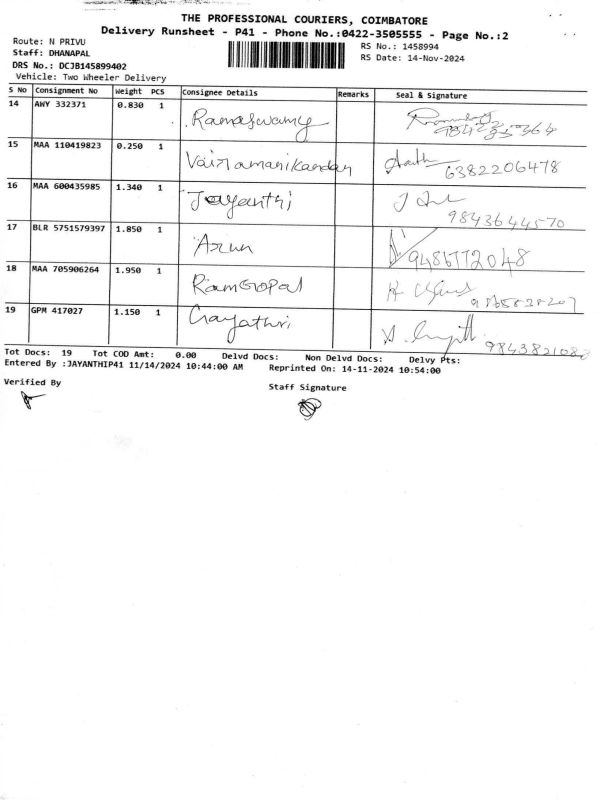 THE PROFESSIONAL COURIERS, COIMBATORE
Delivery Runsheet - P41 - Phone No.:0422-3505555 - Page No.:2
Route: N PRIVU
RS No.: 1458994
Staff: DHANAPAL
RS Date: 14-Nov-2024
DRS No.: DCJB145899402
Vehicle: Two Wheeler Delivery
S No Consignment No Weight PCS Consignee Details Remarks Seal & Signature
14 AWY 332371 0.830 1 Ramaswamy
15 MAA 110419823 0.250 1 Vairamanikandan 6382206478
16 MAA 600435985 1.340 1 Jayanthi 9843644570
17 BLR 5751579397 1.850 1 Arun 9486772048
18 MAA 705906264 1.950 1 RamGopal
19 GPM 417027 1.150 1 Gayathri
Tot Docs: 19 Tot COD Amt: 0.00 Delvd Docs: Non Delvd Docs: Delvy Pts:
Entered By :JAYANTHIP41 11/14/2024 10:44:00 AM Reprinted On: 14-11-2024 10:54:00
Verified By
Staff Signature